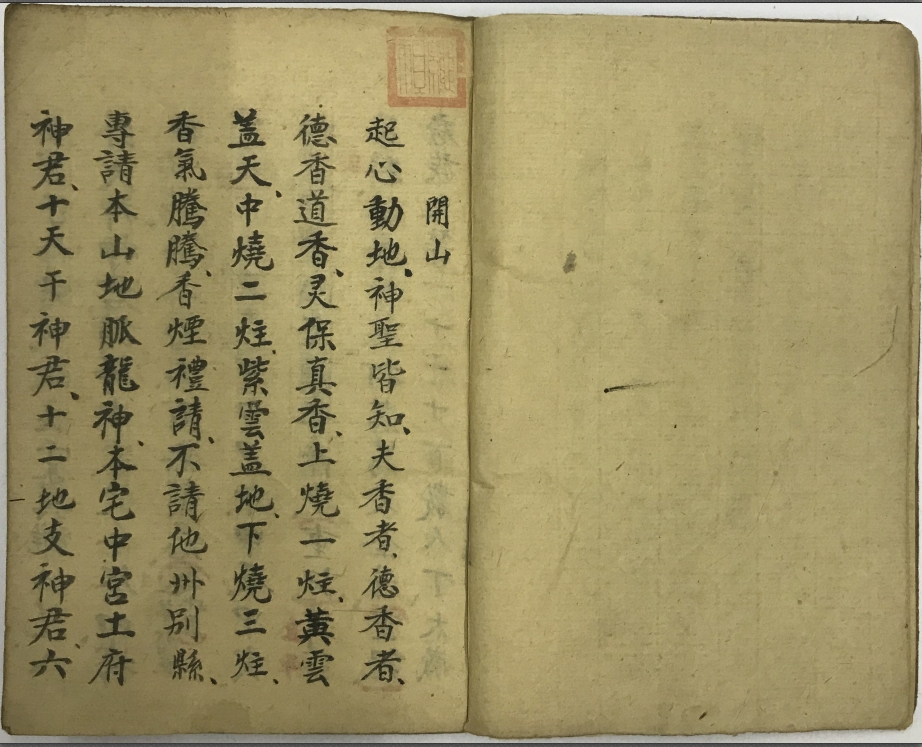 開山
起心動地、神聖皆知、夫香者、德香者、
德香道香、灵保真香、上燒一炷、黃雲
盖天、中燒二炷、紫雲盖地、下燒三炷、
香氣騰騰、香煙禮請、不請他州別縣、
專請本山地脈龍神、本宅中宮土府
神君、十天干神君、十二地支神君、六